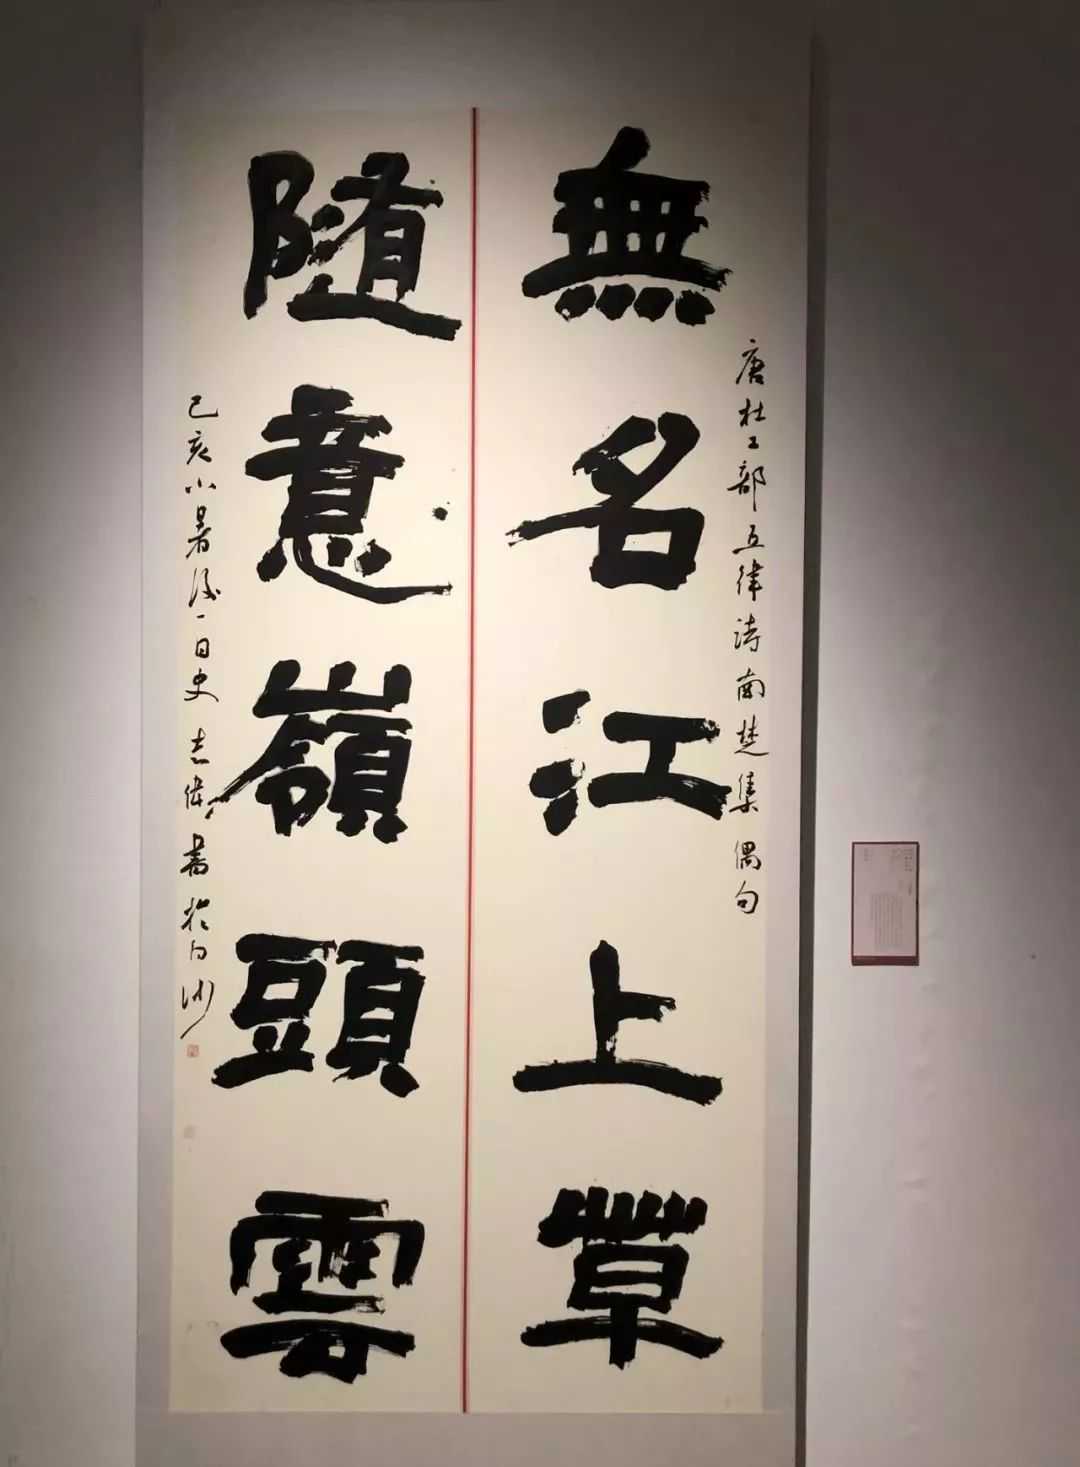 無名江上草
唐杜工部五律詩南楚集偶句
隨意嶺頭雲
己亥小暑後一日史志偉書於白沙